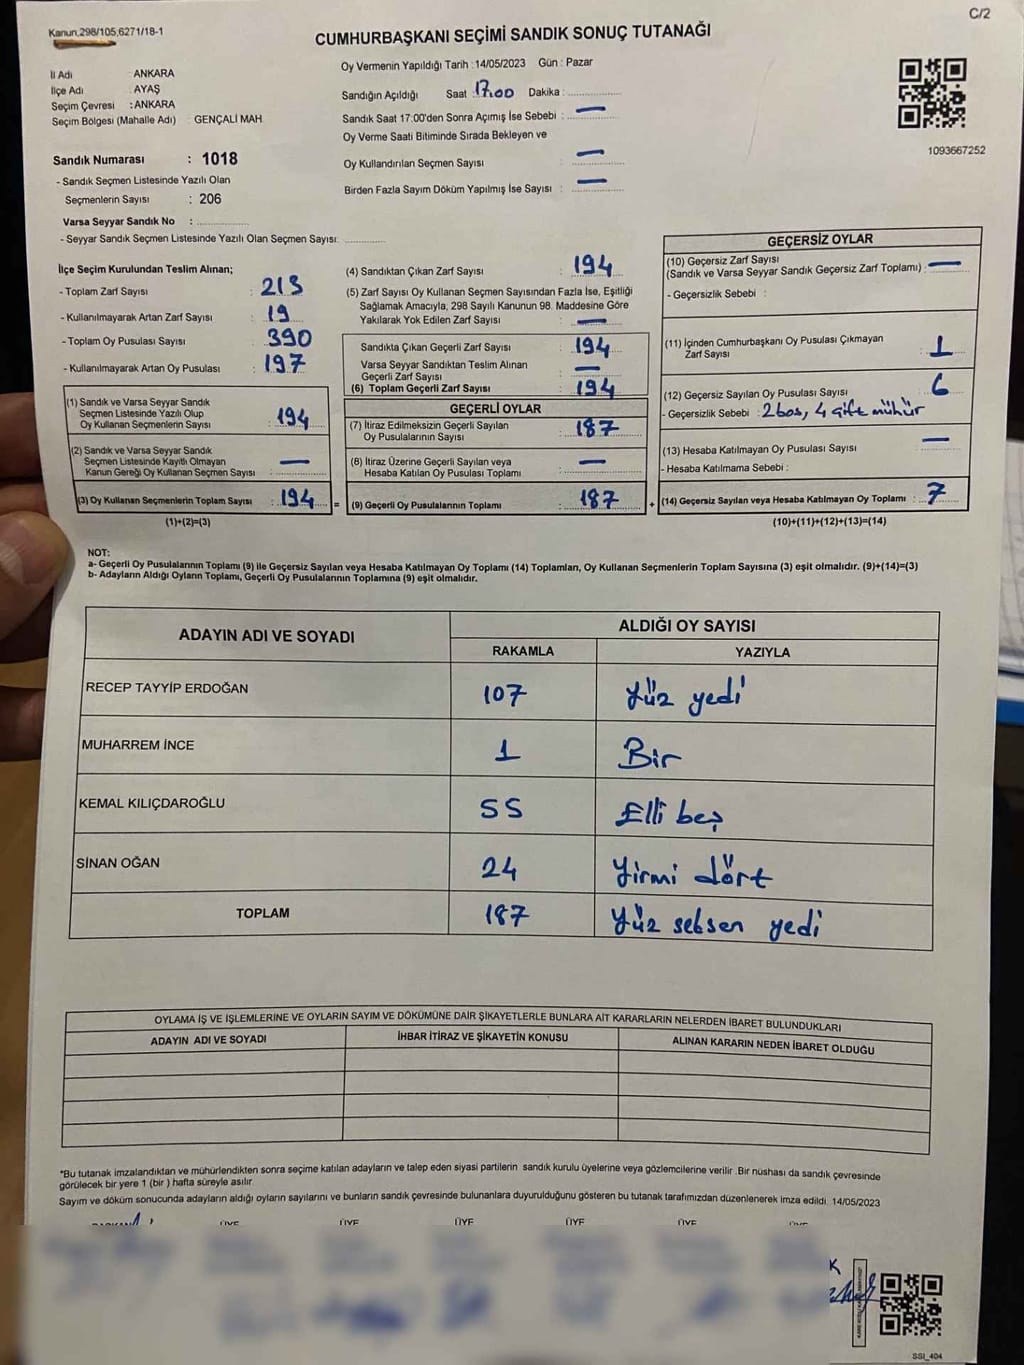 C/2
Kanun,298/105,6271/18-1
CUMHURBAŞKANI SEÇİMİ SANDIK SONUÇ TUTANAĞI
İl Adı : ANKARA
İlçe Adı : AYAŞ
Seçim Çevresi : ANKARA
Seçim Bölgesi (Mahalle Adı) : GENÇALİ MAH.
Sandık Numarası : 1018
- Sandık Seçmen Listesinde Yazılı Olan
Seçmenlerin Sayısı : 206
Varsa Seyyar Sandık No :
- Seyyar Sandık Seçmen Listesinde Yazılı Olan Seçmen Sayısı:
Oy Vermenin Yapıldığı Tarih : 14/05/2023 Gün : Pazar
Sandığın Açıldığı Saat : 17.00 Dakika :
Sandık Saat 17:00'den Sonra Açımış İse Sebebi : —
Oy Verme Saati Bitiminde Sırada Bekleyen ve
Oy Kullandırılan Seçmen Sayısı : —
Birden Fazla Sayım Döküm Yapılmış İse Sayısı : —
1093667252
İlçe Seçim Kurulundan Teslim Alınan;
- Toplam Zarf Sayısı : 213
- Kullanılmayarak Artan Zarf Sayısı : 19
- Toplam Oy Pusulası Sayısı : 390
- Kullanılmayarak Artan Oy Pusulası : 197
(1) Sandık ve Varsa Seyyar Sandık
Seçmen Listesinde Yazılı Olup
Oy Kullanan Seçmenlerin Sayısı : 194
(2) Sandık ve Varsa Seyyar Sandık
Seçmen Listesinde Kayıtlı Olmayan
Kanun Gereği Oy Kullanan Seçmen Sayısı : —
(3) Oy Kullanan Seçmenlerin Toplam Sayısı : 194 =
(1)+(2)=(3)
(4) Sandıktan Çıkan Zarf Sayısı : 194
(5) Zarf Sayısı Oy Kullanan Seçmen Sayısından Fazla İse, Eşitliği
Sağlamak Amacıyla, 298 Sayılı Kanunun 98. Maddesine Göre
Yakılarak Yok Edilen Zarf Sayısı : —
Sandıkta Çıkan Geçerli Zarf Sayısı : 194
Varsa Seyyar Sandıktan Teslim Alınan
Geçerli Zarf Sayısı : —
(6) Toplam Geçerli Zarf Sayısı : 194
GEÇERLİ OYLAR
(7) İtiraz Edilmeksizin Geçerli Sayılan
Oy Pusulalarının Sayısı : 187
(8) İtiraz Üzerine Geçerli Sayılan veya
Hesaba Katılan Oy Pusulası Toplamı : —
(9) Geçerli Oy Pusulalarının Toplamı : 187 +
GEÇERSİZ OYLAR
(10) Geçersiz Zarf Sayısı
(Sandık ve Varsa Seyyar Sandık Geçersiz Zarf Toplamı) : —
- Geçersizlik Sebebi :
(11) İçinden Cumhurbaşkanı Oy Pusulası Çıkmayan
Zarf Sayısı : 1
(12) Geçersiz Sayılan Oy Pusulası Sayısı : 6
- Geçersizlik Sebebi : 2 boş, 4 çift mühür
(13) Hesaba Katılmayan Oy Pusulası Sayısı : —
- Hesaba Katılmama Sebebi :
(14) Geçersiz Sayılan veya Hesaba Katılmayan Oy Toplamı : 7
(10)+(11)+(12)+(13)=(14)
NOT:
a- Geçerli Oy Pusulalarının Toplamı (9) ile Geçersiz Sayılan veya Hesaba Katılmayan Oy Toplamı (14) Toplamları, Oy Kullanan Seçmenlerin Toplam Sayısına (3) eşit olmalıdır. (9)+(14)=(3)
b- Adayların Aldığı Oyların Toplamı, Geçerli Oy Pusulalarının Toplamına (9) eşit olmalıdır.
ADAYIN ADI VE SOYADI
ALDIĞI OY SAYISI
RAKAMLA YAZIYLA
RECEP TAYYİP ERDOĞAN 107 Yüz yedi
MUHARREM İNCE 1 Bir
KEMAL KILIÇDAROĞLU 55 Elli beş
SİNAN OĞAN 24 Yirmi dört
TOPLAM 187 Yüz seksen yedi
OYLAMA İŞ VE İŞLEMLERİNE VE OYLARIN SAYIM VE DÖKÜMÜNE DAİR ŞİKAYETLERLE BUNLARA AİT KARARLARIN NELERDEN İBARET BULUNDUKLARI
ADAYIN ADI VE SOYADI İHBAR İTİRAZ VE ŞİKAYETİN KONUSU ALINAN KARARIN NEDEN İBARET OLDUĞU
*Bu tutanak imzalandıktan ve mühürlendikten sonra seçime katılan adayların ve talep eden siyasi partilerin sandık kurulu üyelerine veya gözlemcilerine verilir .Bir nushası da sandık çevresinde
görülecek bir yere 1 (bir ) hafta süreyle asılır.
Sayım ve döküm sonucunda adayların aldığı oyların sayılarını ve bunların sandık çevresinde bulunanlara duyurulduğunu gösteren bu tutanak tarafımızdan düzenlenerek imza edildi. 14/05/2023
ÜYE ÜYE ÜYE ÜYE ÜYE ÜYE
SSI_404